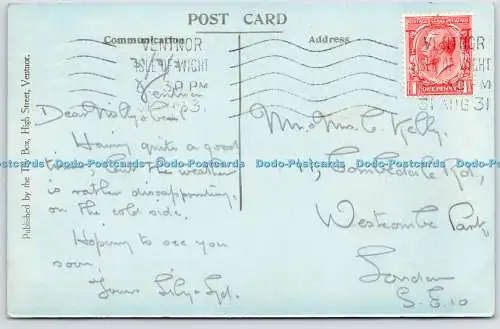 POST CARD
Communication
Address
VENTNOR
ISLE OF WIGHT
PM
31 AUG 31
ONE PENNY
Ventnor
Dear Milly &
Having quite a good
time, but the weather
is rather disappointing,
on the cold side.
Hoping to see you
soon,
Yours Lily & Syd.
Mr & Mrs C. Kelly,
11, Combedale Rd.,
Westcombe Park
London
S.E.10
Published by the Toy Box, High Street, Ventnor.
Dodo-Postcards Dodo-Postcards Dodo-Postcards Dodo-Postcards Dodo-Postcards Dodo-Postcards